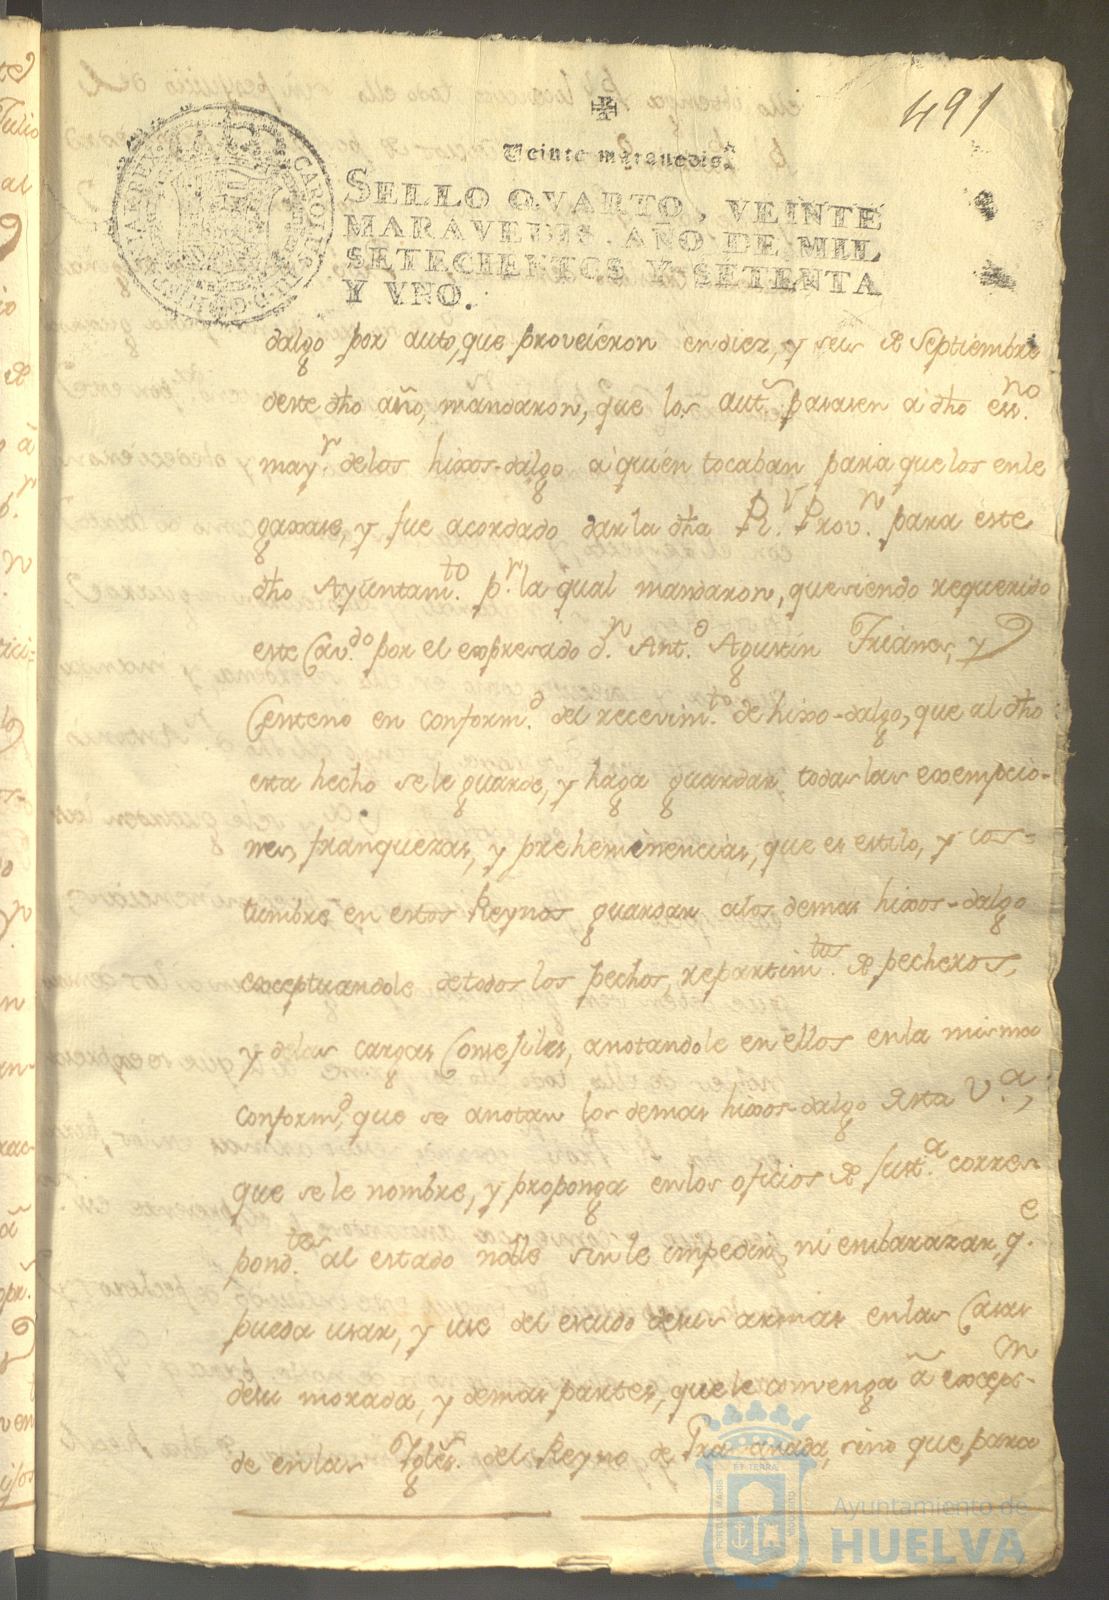 491
Veinte maravedis.
SELLO QVARTO, VEINTE
MARAVEDIS, AÑO DE MIL
SETECIENTOS Y SETENTA
Y VNO.
CAROLUS III D G HISPANIAR REX
dalgo por auto, que proveieron en diez, y seis de Septiembre
deste dho año, mandaron, que los aut.s pasasen a dho ess.no
may.r de los hixos-dalgo a quien tocaban para que los enle
gaxase, y fue acordado dar la dha Rl. Prov.n para este
dho Ayuntam.to p.r la qual mandaron, que siendo requerido
este Cav.do por el expresado d.n Ant.o Agustin Trianes, y
Centeno en conform.d del recevim.to de hixo-dalgo, que al dho
esta hecho se le guarde, y haga guardar todas las exempcio-
nes, franquezas, y preheminencias, que es estilo, y cos-
tumbre en estos Reynos guardar a los demas hixos-dalgo
exceptuandole de todos los pechos, repartim.tos de pecheros,
y de las cargas Consejiles, anotandole en ellos en la misma
conform.d que se anotan los demas hixos-dalgo desta V.a,
que se le nombre, y proponga en los oficios de just.a corres-
pond.tes al estado noble sin le impedir, ni embarazar, q.e
pueda usar, y use del escudo de sus armas en las Casas
de su morada, y demas partes, que le convenga à excep.n
de en las Igles.s del Reyno de Granada, sino que para
Ayuntamiento de
HUELVA
PORTUS MARIS ET TERRAE CUSTODIA